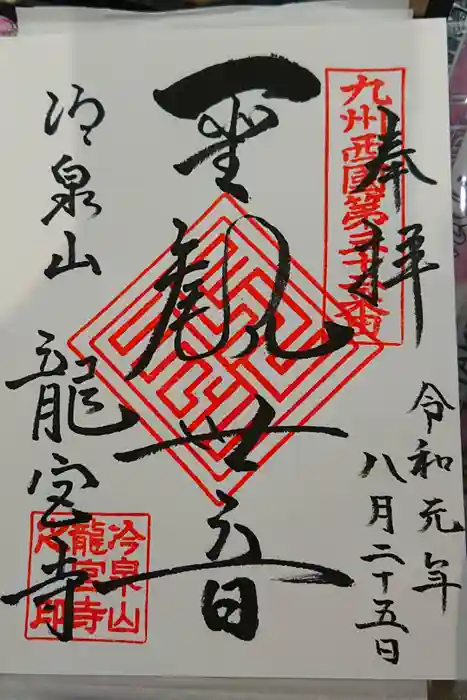 奉拝
九州西国第三十二番
令和元年
八月二十五日
聖観世音
冷泉山
龍宮寺
冷泉山
龍宮寺
之印